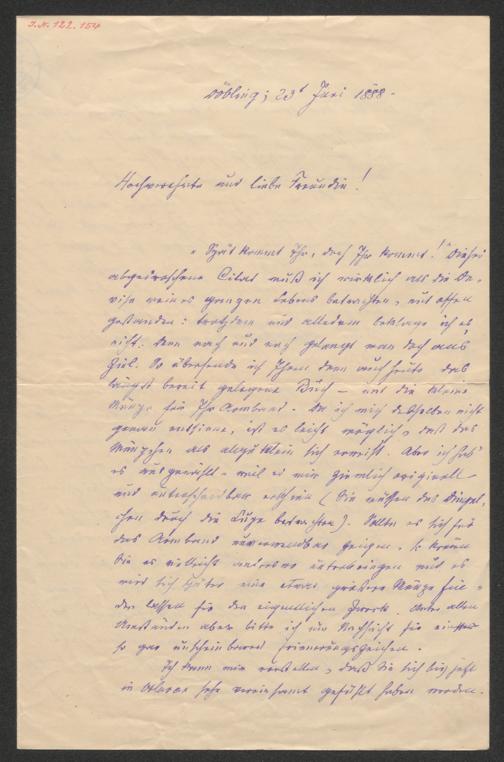 I.N. 122.154
Döbling; 23t Juni 1888.
Hochverehrte und liebe Freundin!
„Spät kommt Ihr, doch Ihr kommt!" Dieses
abgedroschene Citat muß ich wirklich als die De-
vise meines ganzen Lebens betrachten, und offen
gestanden: trotzdem und alledem beklage ich es
nicht: denn nach und nach gelangt man doch ans
Ziel. So übersende ich Ihnen denn auch heute das
längst bereit gelegene Buch – und die kleine
Münze für Ihr Armband. Da ich mich desselben nicht
genau entsinne, ist es leicht möglich, daß das
Münzchen als allzu klein sich erweist. Aber ich hab'
es ausgewählt, weil es mir ziemlich originell
und unterscheidbar erschien (Sie müssen das
durch die Lupe betrachten). Sollte es sich für
das Armband unverwendbar zeigen, so können
Sie es vielleicht anderswo unterbringen und es
wird sich später eine etwas größere Münze fin-
den lassen für den eigentlichen Zweck. Unter allen
Umständen aber bitte ich um Nachsicht für ein
so gar unscheinbares Erinnerungszeichen.
Ich kann mir vorstellen, daß Sie sich bis jetzt
in sehr vereinsamt gefühlt haben werden.